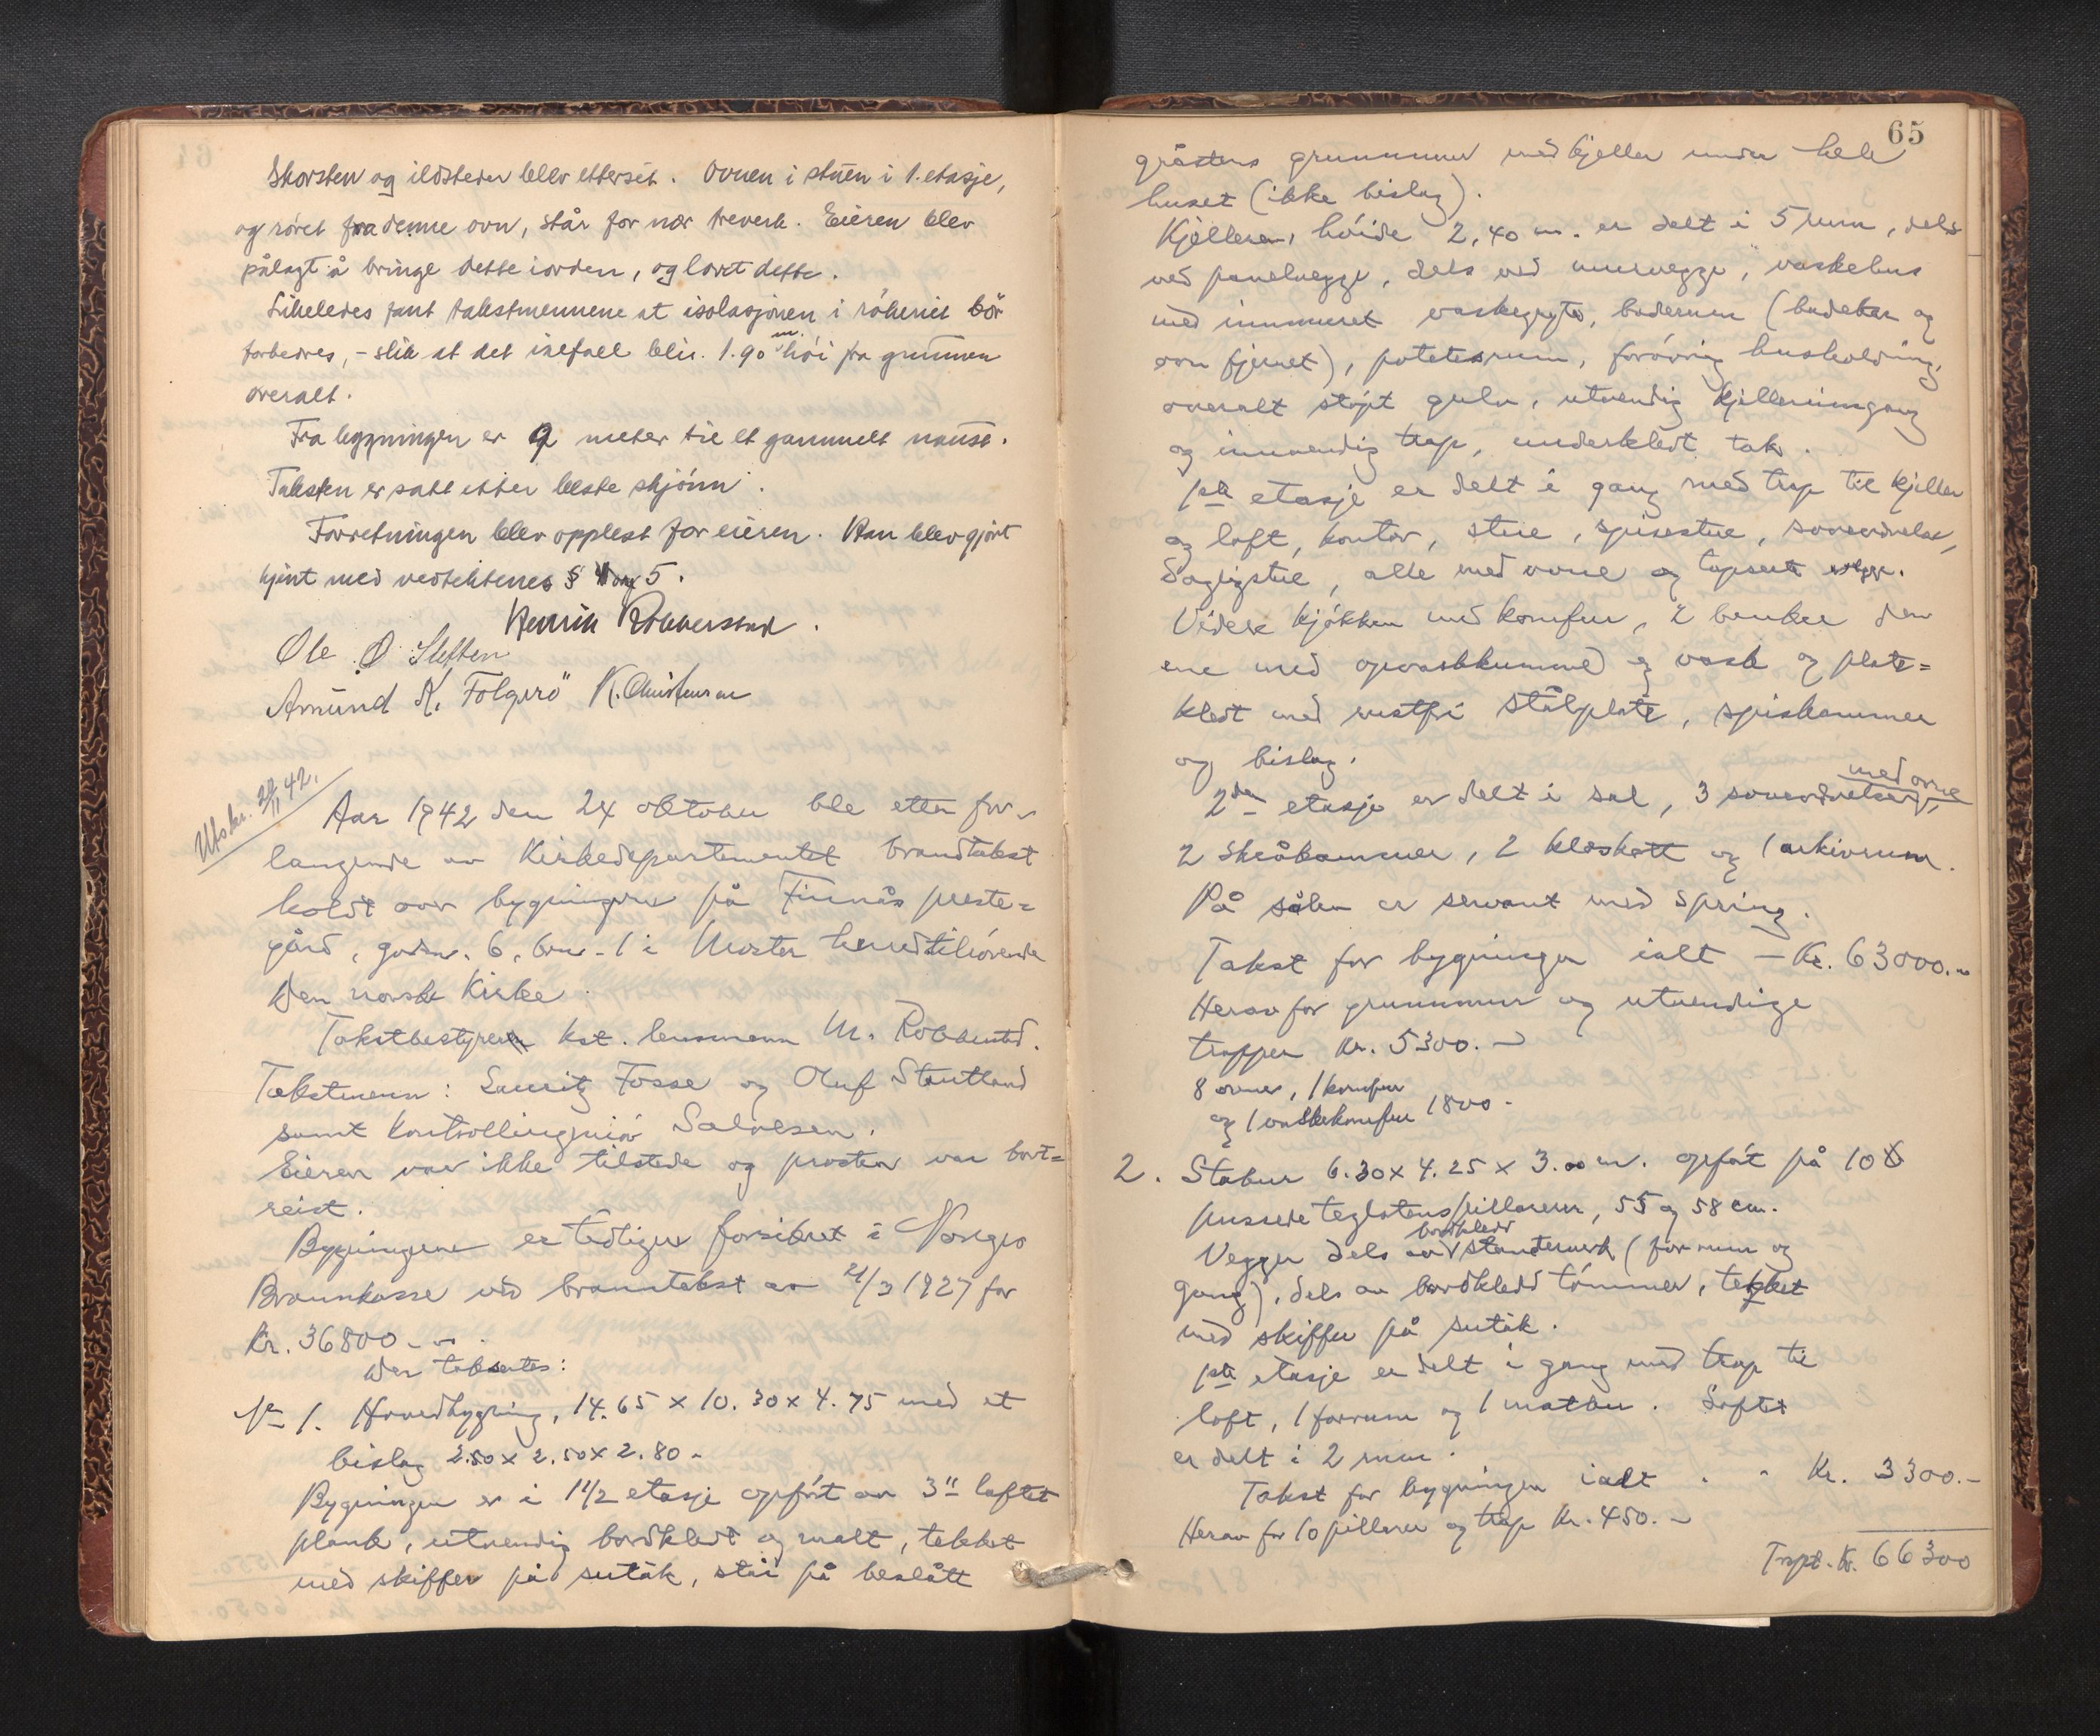 Skorsten og ildsteder blev efterset. Ovnen i stuen i 1. etasje,
og röret fra denne ovn, står for nær treverk. Eieren blev
pålagt å bringe dette iorden, og lovet dette.
Likeledes fant takstmennene at isolasjonen i rökeriet bör
forbedres, - slik at det iallfall blir 1.90 m. höi fra grunnen
overalt.
Fra bygningen er 9 meter til et gammelt naust.
Taksten er satt efter beste skjönn.
Forretningen blev opplest for eieren. Han blev gjort
kjent med vedtektenes § 4 og 5.
Henrik Robberstad.
Ole Ø Sletten
Amund K. Folgerö K. Christensen
Utskr. 20/11 42.
Aar 1942 den 24 oktober ble etter for-
langende av Kirkedepartementet brandtakst
holdt over bygningene på Finnås preste=
gård, gårdsnr. 6, bnr. 1 i Moster herred tilhörende
Den norske Kirke.
Takstbestyrer kst. lensmann M. Robberstad.
Takstmenn: Lauritz Fosse og Oluf Stautland
samt kontrollingeniör Salvesen.
Eieren var ikke tilstede og prosten var bort=
reist.
Bygningene er tidligere forsikret i Norges
Brannkasse ved branntakst av 21/3 1927 for
Kr. 36800.-
Der takseres:
No 1. Hovedbygning, 14.65 x 10.30 x 4.75 med et
bislag 2.50 x 2.50 x 2.80 -
Bygningen er i 1 1/2 etasje opfört av 3" laftet
plank, utvendig bordkledt og malt, tekket
med skiffer på sutak, står på beslått
65
gråstens grunnmur med kjeller under hele
huset (ikke bislag).
Kjelleren, höide 2,40 m. er delt i 5 rum, dels
ved panelvegge, dels ved murvegge, vaskehus
med innmuret vaskegryte, baderum (badekar og
ovn fjernet), potetesrum, forövrig husholdning,
overalt stöpt gulv, utvendig kjellerinngang
og innvendig trap, underkledt tak.
1ste etasje er delt i gang med trap til kjeller
og loft, kontor, stue, spisestue, soveværelse,
Dagligstue, alle med ovne og tapserte vegge.
Videre kjökken med komfur, 2 benker den
ene med opvaskkumme og vask og plate=
kledt med rustfri stålplate, spiskammer
og bislag.
2den etasje er delt i sal, 3 soveværelser med ovne,
2 skråkammer, 2 kleskott og 1 arkivrum.
På salen er servant med spring.
Takst for bygningen ialt - Kr. 63000.-
Herav for grunnmur og utvendige
trapper Kr. 5300.-
8 ovner, 1 komfur
og 1 vaskekomfur 1800.-
2. Stabur 6.30 x 4.25 x 3.00 m. opfört på 10
pussede teglstenspillarer, 55 og 58 cm.
Vegger dels av bordkledd standerverk (forrum og
gang), dels av bordkledd tömmer, tekket
med skiffer på sutak.
1ste etasje er delt i gang med trap til
loft, 1 forrum og 1 matbu. Loftet
er delt i 2 rum.
Takst for bygningen ialt - - Kr. 3300.-
Herav for 10 pillarer og trap Kr. 450.-
Trspt. Kr. 66300